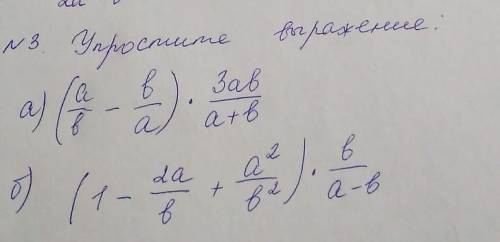 №3. Упростите выражение:
а) (a/b − b/a) · 3ab/(a+b)
б) (1 − 2a/b + a²/b²) · b/(a−b)